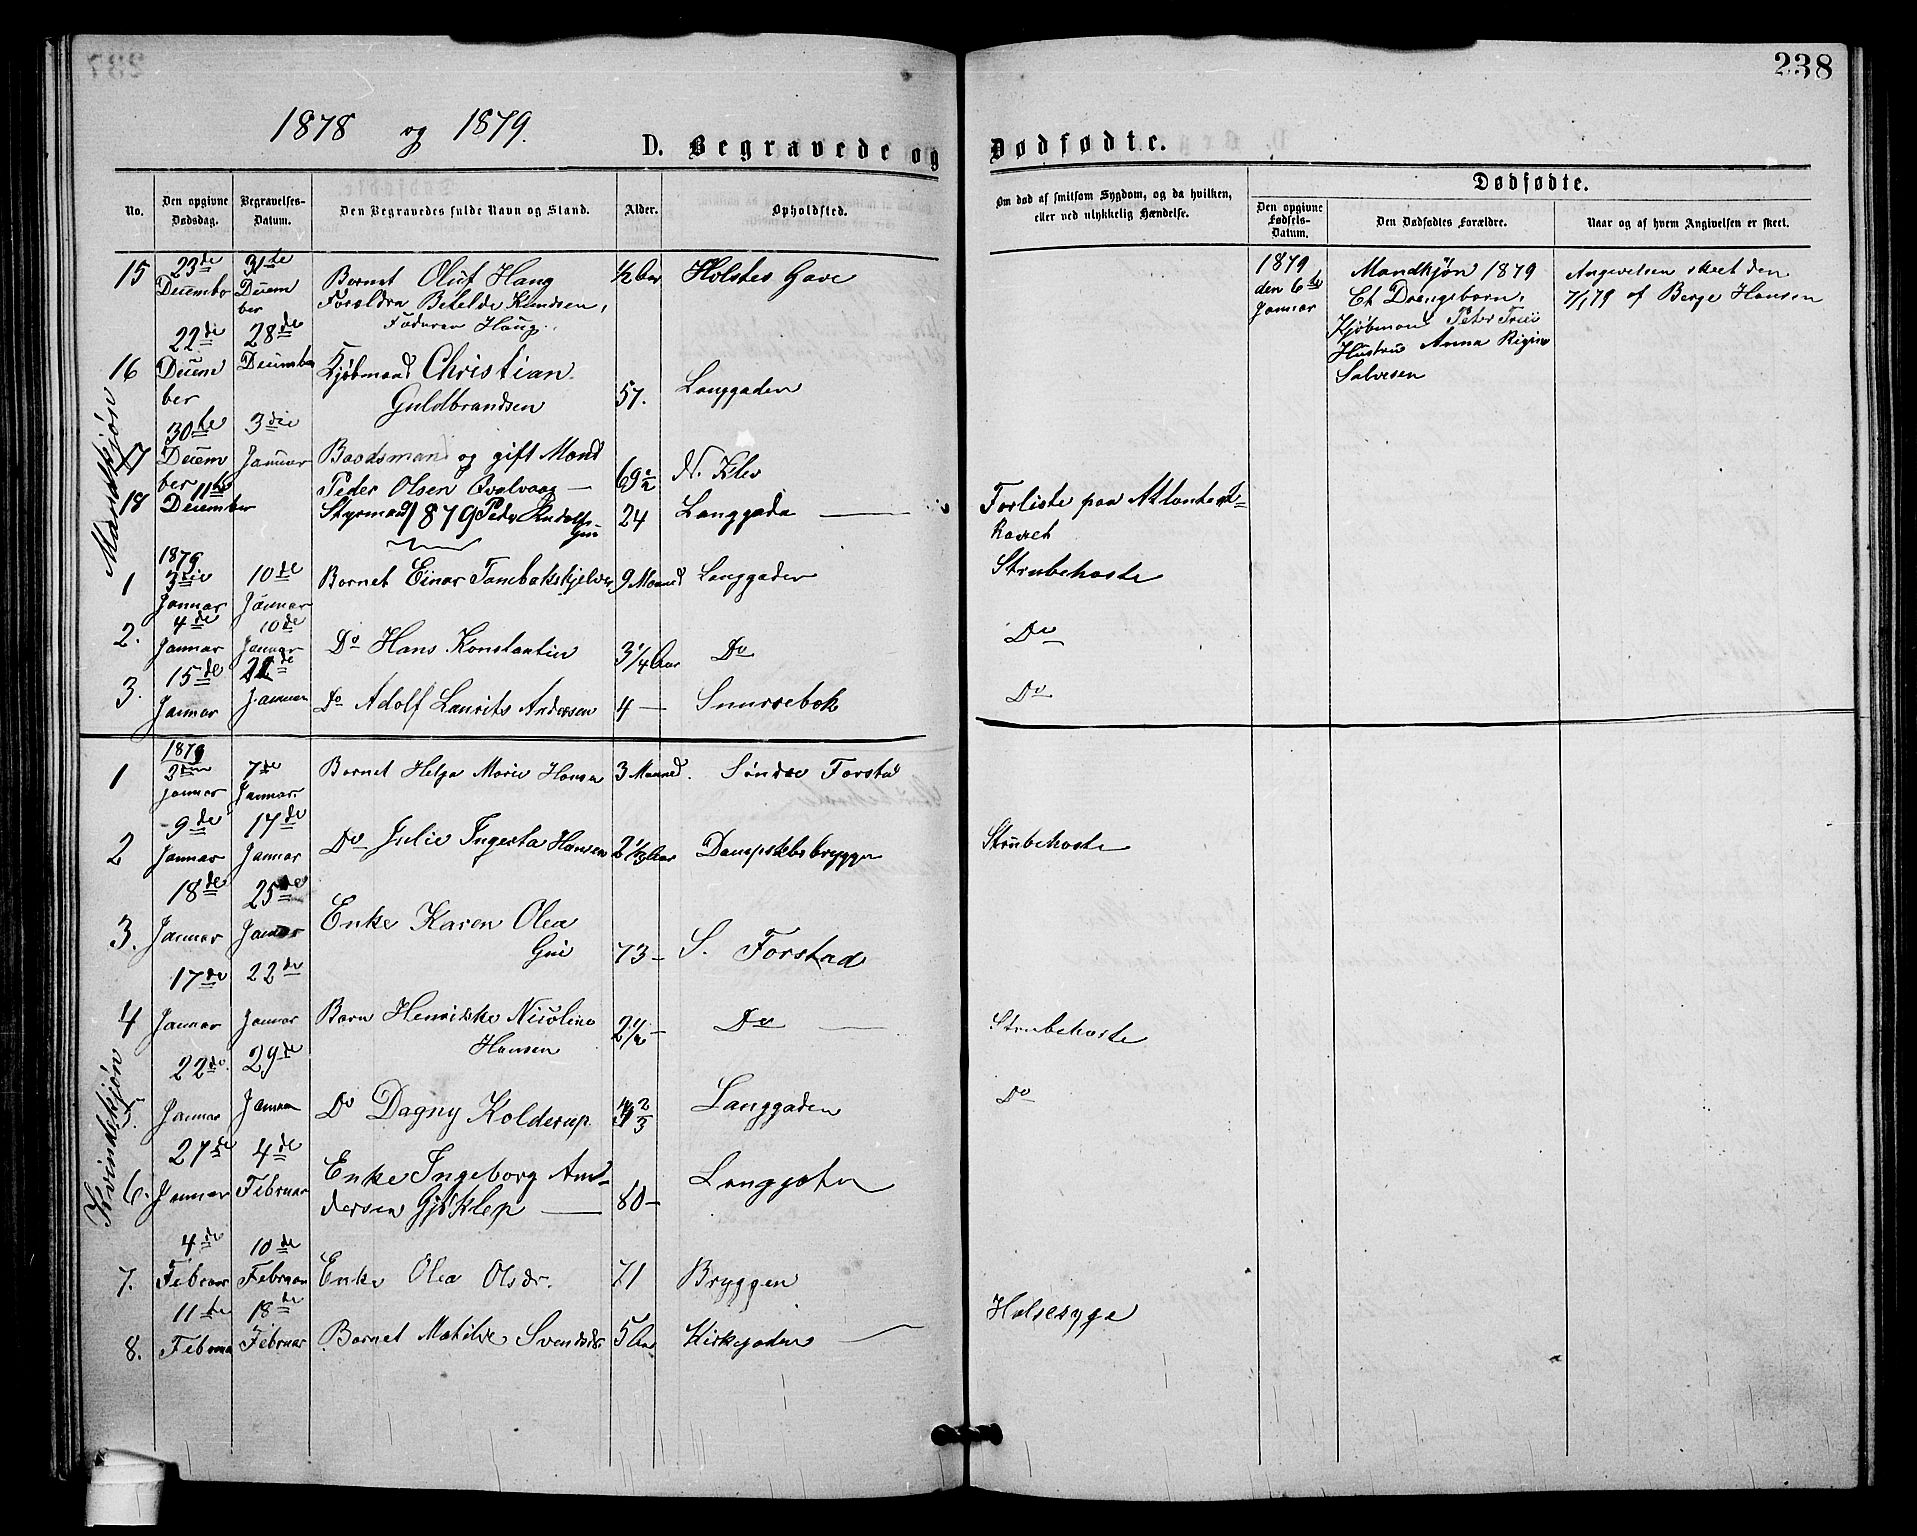 238
1878 og 1879.
D. Begravede og Dødfødte.
No.
Den opgivne Dødsdag.
Begravelses-Datum.
Den Begravedes fulde Navn og Stand.
Alder.
Opholdsted.
Om død af smitsom Sygdom, og da hvilken, eller ved ulykkelig Hændelse.
Dødfødte.
Den opgivne Fødsels-Datum.
Den Dødfødtes Forældre.
Naar og af hvem Angivelsen er skeet.
Mandkjøn
15 23de December 31te December Barnet Oluf Haug ½ Aar Holstes Gave
Forældre Betelde Knudsen,
Faderen Haug.
1879 den 6te Januar
Mandkjøn 1879
Et Drengebarn,
Kjøbmand Peter
Hustru Anna
Salvesen
Angivelsen skeet den
7/1 79 af Berge Hansen
16 22de December 28de December Kjøbmand Christian 57. Langgaden
Guldbrandsen
17 30te December 3die Januar Baadsmand og gift Mand 69 ½ N. Klev
Peder Olsen Qvalvaag —
18 11te December Styrmand 1879 Peder 24 Langgade — Forliste paa
Havet
1 1879 3die Januar 10de Januar Barnet Einar Tambakskjelver 9 Maaned Langgaden Strubehoste
2. 4de Januar 10de Januar Do Hans Konstantin 3 ¼ Aar Do Do
3. 15de Januar 21de Januar Do Adolf Laurits Andersen 4 — Snurrebok Do
Kvindekjøn
1 1879 Januar 7de Januar Barnet Helga Marie Hansen 3 Maaned. Søndre Forstad
2 9de Januar 14de Januar Do Julie Ingerta Hansen 2 ½ Aar Dampskbsbryggen Strubehoste
3. 18de Januar 25de Januar Enke Karen Olea 73 — S. Forstad
4 17de Januar 22de Januar Barn Henrikke Nicoline 2 ½ — Do — Strubehoste
Hansen
5. 22de Januar 29de Januar Do Dagny Kolderup 2/3 Langgaden Do
6. 27de Januar 4de Februar Enke Ingeborg An-
dersen — 80 —
7. 4de Februar 10de Februar Enke Olea Olsdr. 71 Bryggen
8. 11te Februar 18de Februar Barnet Matilde Svendsdr. 5 Aar Kirkegaden — Halsesyge